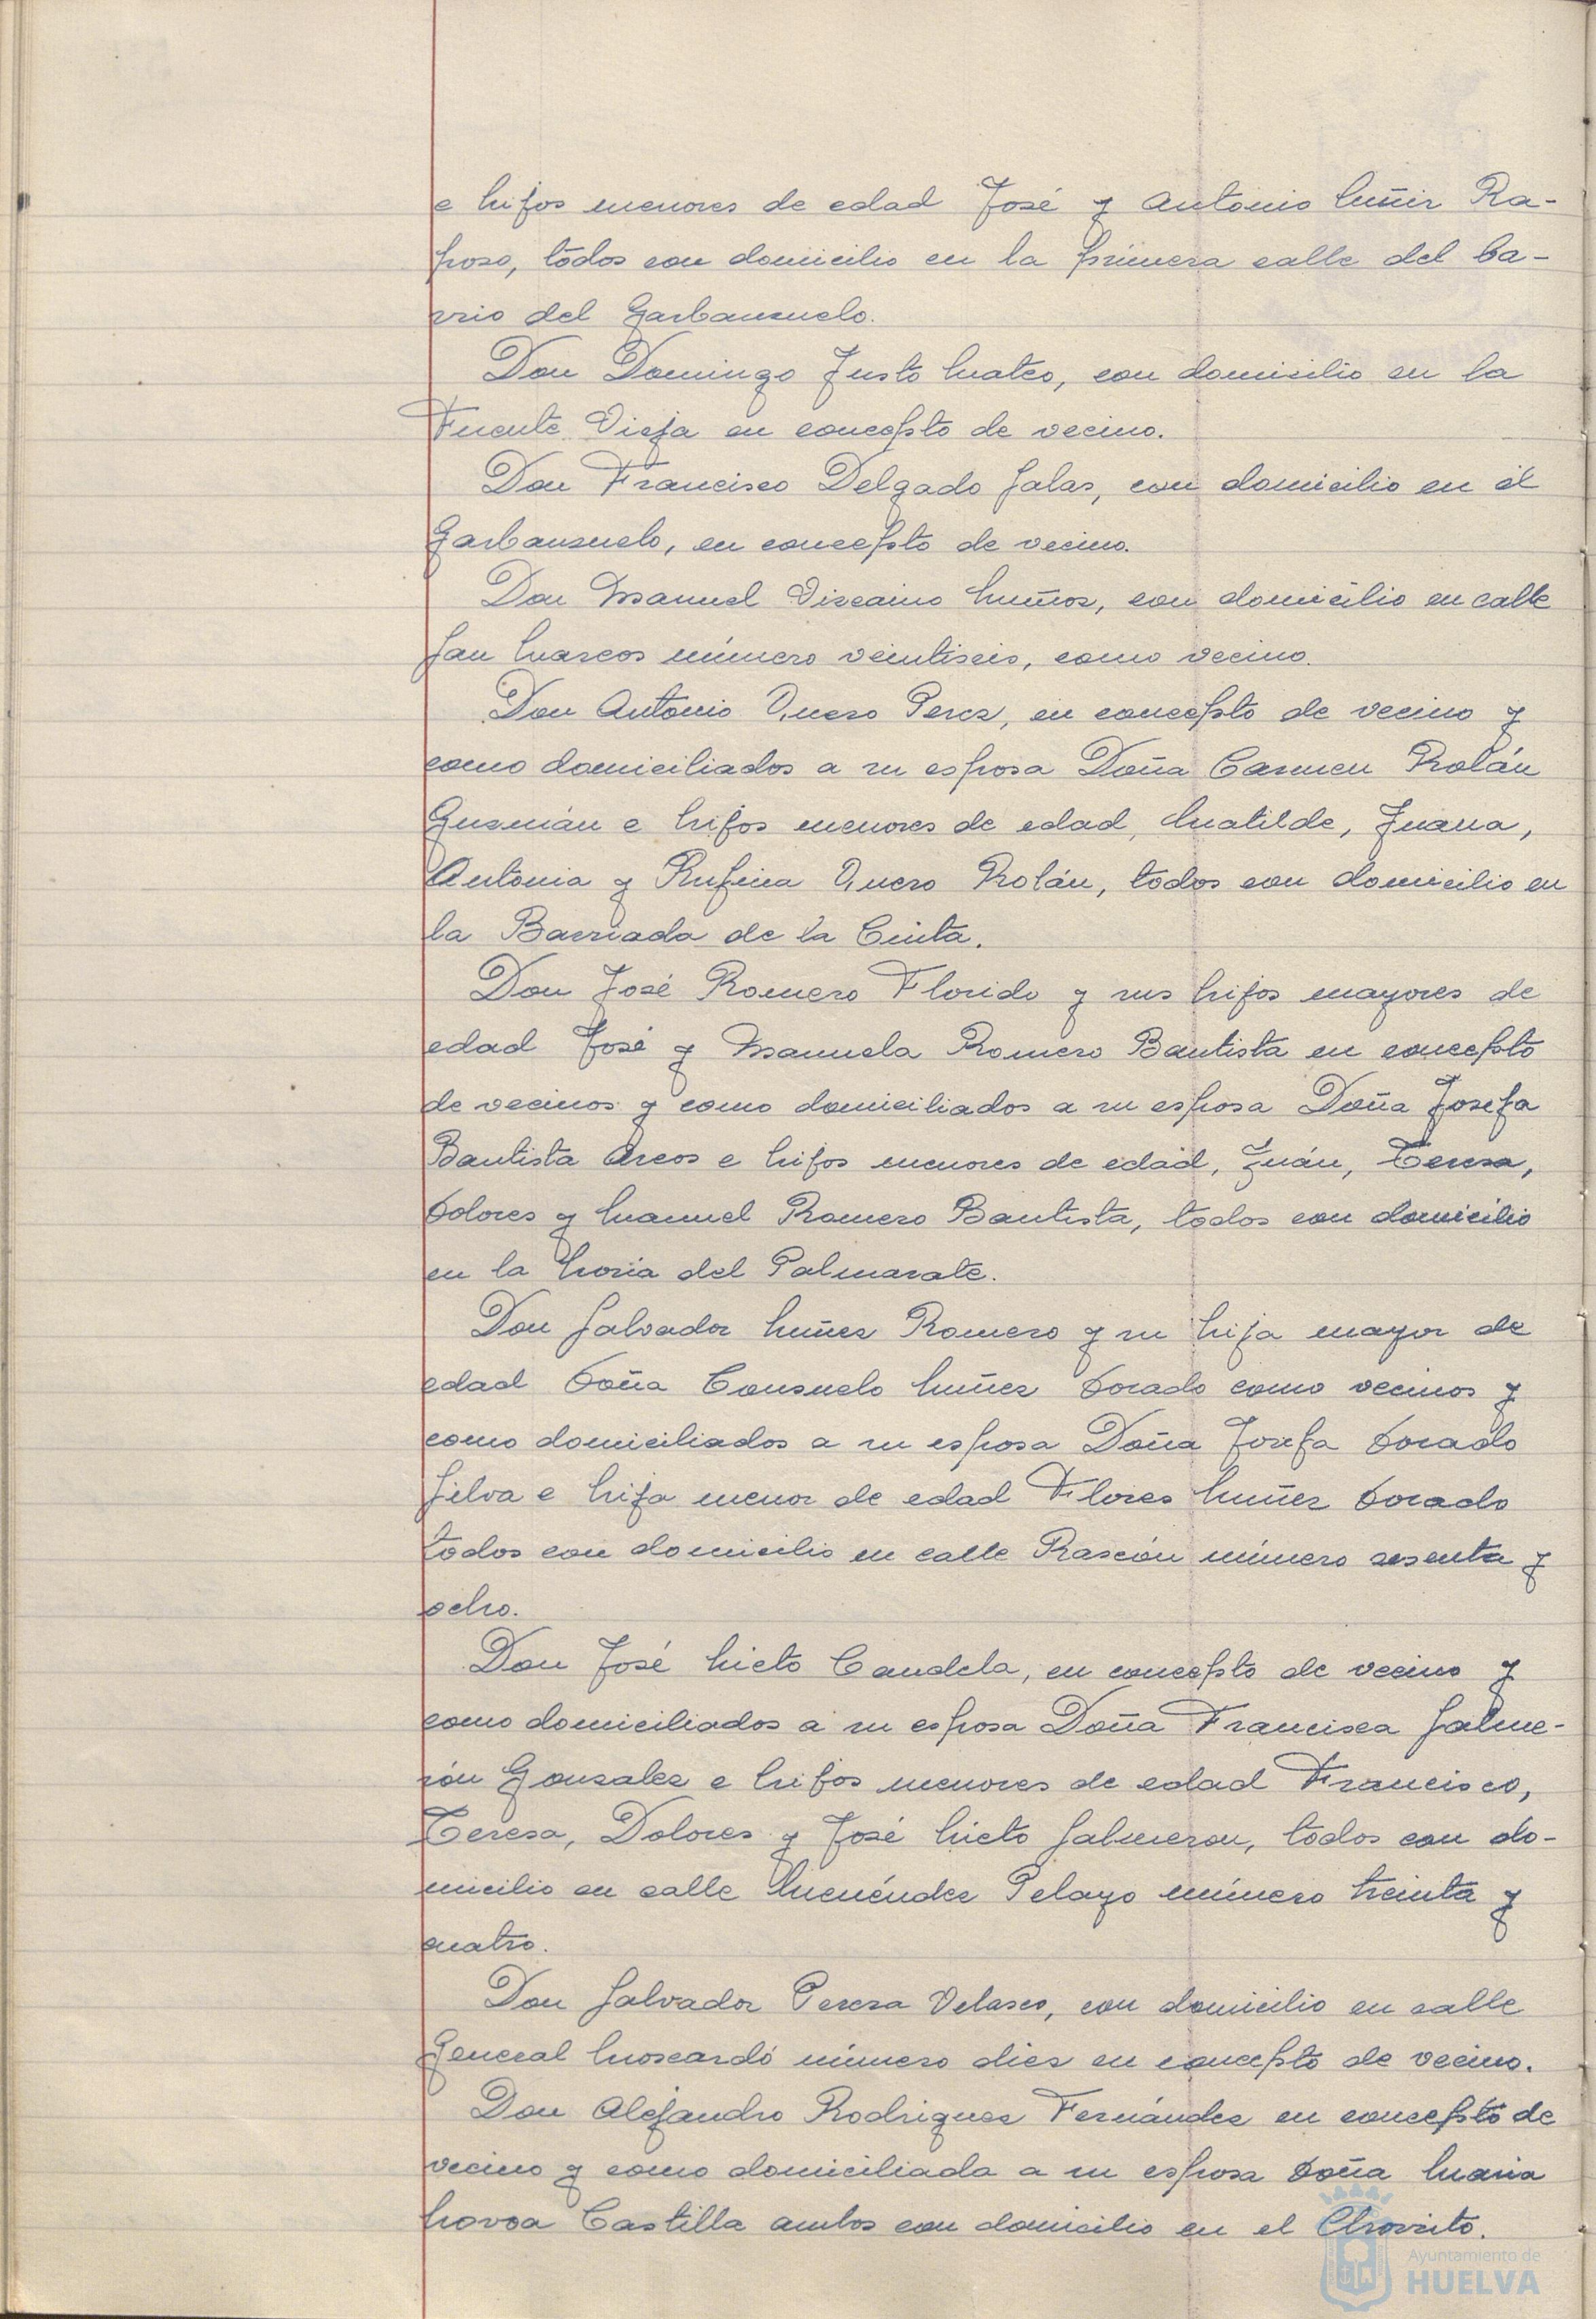 e hijos menores de edad José y Antonio Muñiz Ra-
poso, todos con domicilio en la primera calle del ba-
rrio del Garbanzuelo.
Don Domingo Justo Mateo, con domicilio en la
Fuente Vieja en concepto de vecino.
Don Francisco Delgado Salas, con domicilio en el
Garbanzuelo, en concepto de vecino.
Don Manuel Vizcaino Muñoz, con domicilio en calle
San Marcos número veintiseis, como vecino.
Don Antonio Quero Perez, en concepto de vecino y
como domiciliados a su esposa Doña Carmen Rolán
Guzmán e hijos menores de edad, Matilde, Juana,
Antonia y Rufina Quero Rolán, todos con domicilio en
la Barriada de la Cinta.
Don José Romero Florido y sus hijos mayores de
edad José y Manuela Romero Bautista en concepto
de vecinos y como domiciliados a su esposa Doña Josefa
Bautista Arcos e hijos menores de edad, Juán, Teresa,
Dolores y Manuel Romero Bautista, todos con domicilio
en la Noria del Palmarate.
Don Salvador Nuñez Romero y su hija mayor de
edad Doña Consuelo Nuñez Dorado como vecinos y
como domiciliados a su esposa Doña Josefa Dorado
Silva e hija menor de edad Flores Nuñez Dorado
todos con domicilio en calle Rascón número sesenta y
ocho.
Don José Nieto Candela, en concepto de vecino y
como domiciliados a su esposa Doña Francisca Salme-
rón Gonzalez e hijos menores de edad Francisco,
Teresa, Dolores y José Nieto Salmeron, todos con do-
micilio en calle Menéndez Pelayo número treinta y
cuatro.
Don Salvador Pereza Velasco, con domicilio en calle
General Moscardó número diez en concepto de vecino.
Don Alejandro Rodriguez Fernández en concepto de
vecino y como domiciliada a su esposa Doña Maria
Novoa Castilla ambos con domicilio en el Chorrito.
Ayuntamiento de
HUELVA